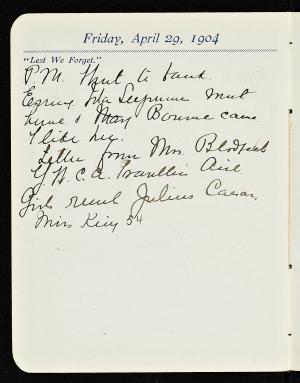 Friday, April 29, 1904
"Lest We Forget."
P.M. Went to bank.
Ida
here & May Bourne came
I like her.
Letter from Mrs.
Y.W.C.A. Travellers Aid.
Girls read Julius Caesar,
Miss King 54